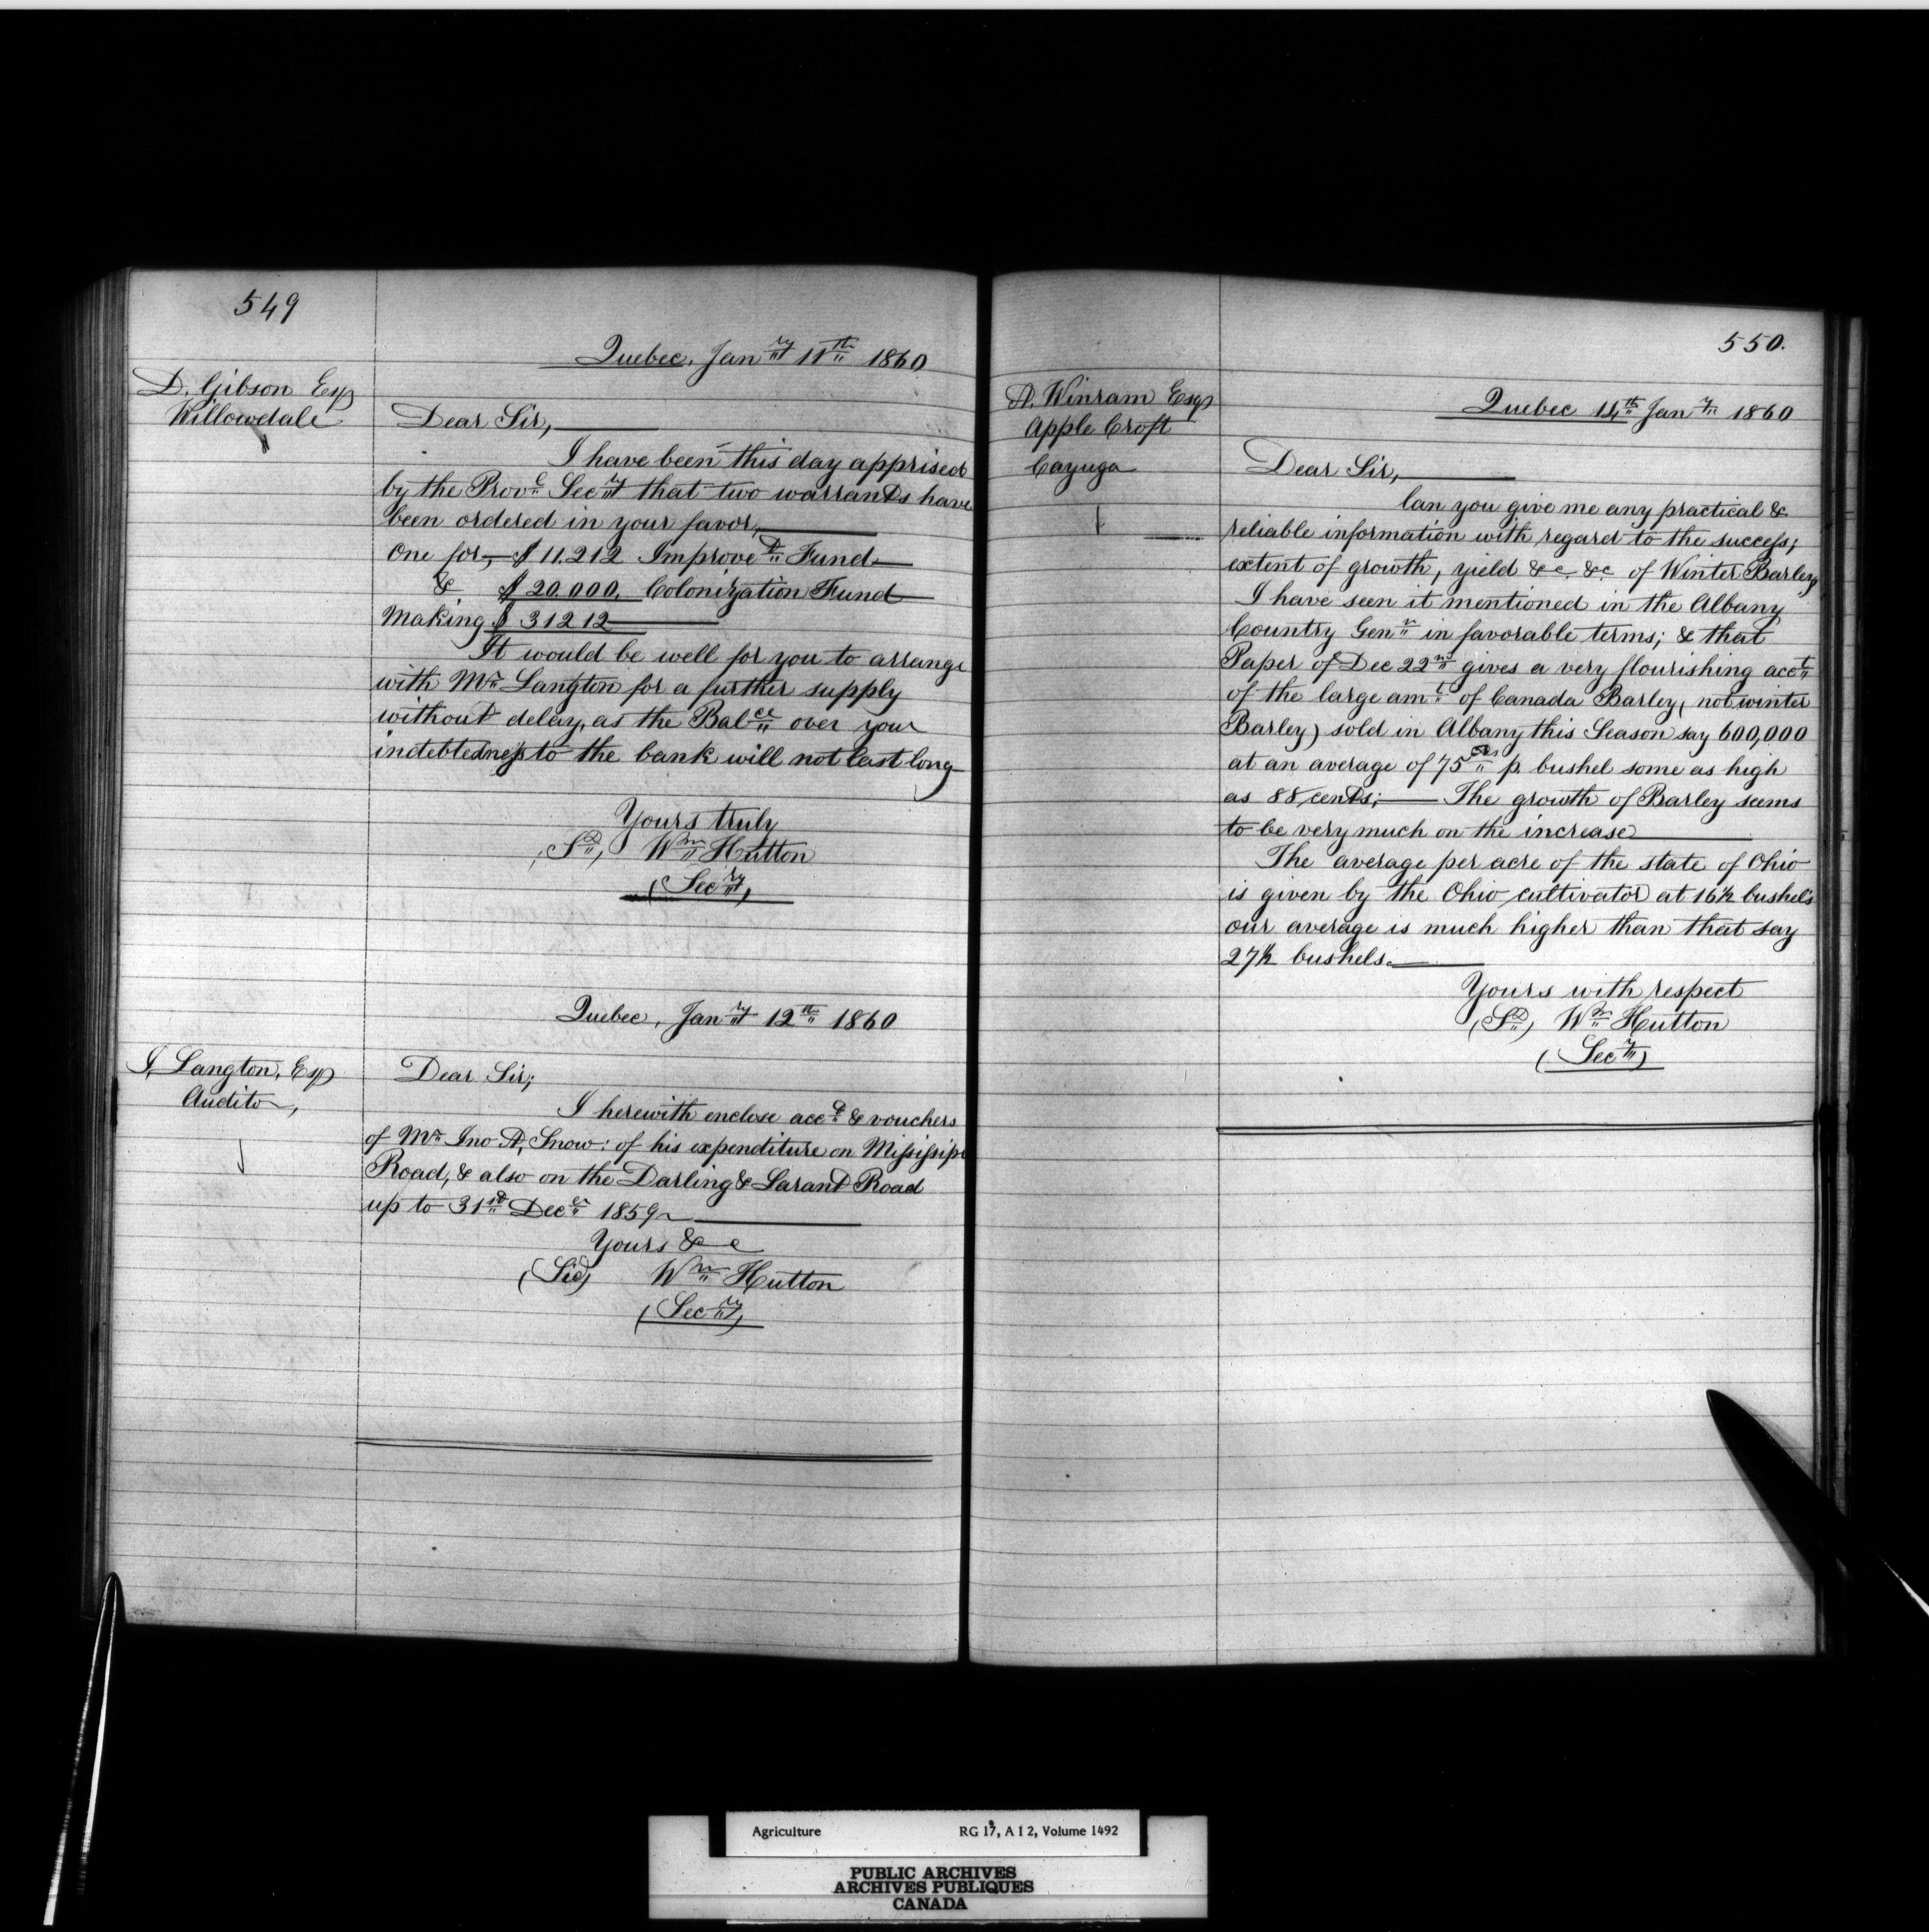 549
Quebec, Jan ry 11th 1860
D. Gibson Esq
Willowdale
Dear Sir,
I have been this day apprised
by the Prov.c Sec ry that two warrants have
been ordered in your favor,
One for, $ 11.212 Improve t Fund
& $ 20.000. Colonization Fund
Making $ 31212
It would be well for you to arrange
with Mr Langton for a further supply
without delay, as the Balce over your
indebtedness to the bank will not last long
Yours truly
(Sd) Wm Hutton
(Sec ry)
Quebec, Jan ry 12th 1860
J. Langton, Esq
Auditor,
Dear Sir;
I herewith enclose acct & vouchers
of Mr Jno A, Snow: of his expenditure on Missisipi
Road, & also on the Darling & Larant Road
up to 31st Decer 1859
Yours &c
(Sid) Wm Hutton
(Sec ry)
550.
A. Winram Esq
Apple Croft
Cayuga
Quebec 14th Jan y 1860
Dear Sir,
Can you give me any practical &
reliable information with regard to the success;
extent of growth, yield &c &c of Winter Barley
I have seen it mentioned in the Albany
Country Gen n in favorable terms; & that
Paper of Dec 22nd gives a very flourishing acct
of the large amt of Canada Barley, (not winter
Barley) sold in Albany this Season say 600,000
at an average of 75 cts p. bushel some as high
as 88 cents; The growth of Barley seems
to be very much on the increase
The average per acre of the state of Ohio
is given by the Ohio cultivator at 16½ bushels
our average is much higher than that say
27½ bushels.
Yours with respect
(Sd) Wm Hutton
(Sec y)
Agriculture RG 17, A I 2, Volume 1492
PUBLIC ARCHIVES
ARCHIVES PUBLIQUES
CANADA